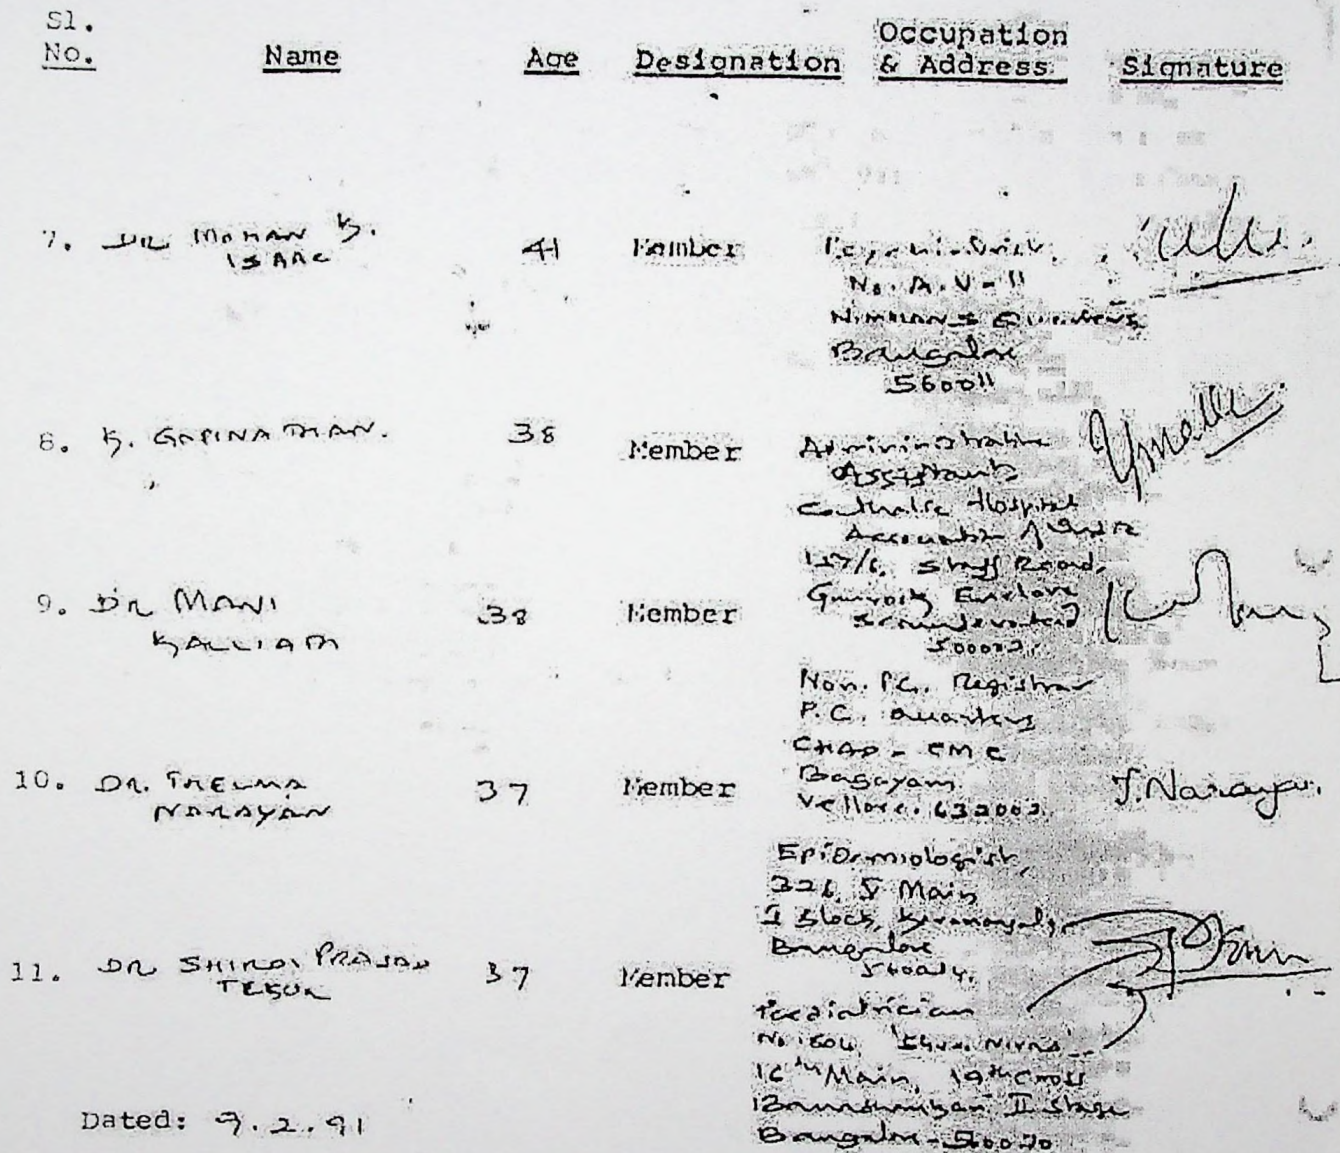 Sl.
No. Name Age Designation Occupation
& Address Signature
7. DR MOHAN K.
ISAAC 41 Member
No. A.V-11
NIMHANS Quarters
Bangalore
560011
8. K. GOPINATHAN. 38 Member Admininistrative
Assistant
Catholic Hospital
Association of India
157/6, Staff Road,
Gunrock Enclave
Secunderabad
9. DR MANI
KALLIATH 38 Member
500003.
Non. P.G. Registrar
P.C. Quarters
CHAD - CMC
Bagayam
Vellore. 632002.
10. DR. THELMA
NARAYAN 37 Member T. Narayan.
Epidemiologist,
326, V Main
I Block, Koramangala,
Bangalore
560034.
11. DR SHIRDI PRASAD
TEKUR 37 Member
Paediatrician
No. 604,
16th Main, 19th Cross
Banashankari II Stage
Bangalore - 560070
Dated: 9.2.91